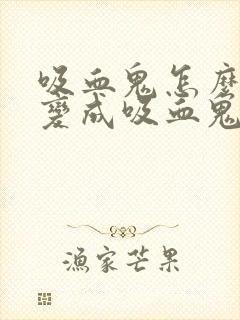 吸血鬼怎麽
變成吸血鬼
漁家芒果